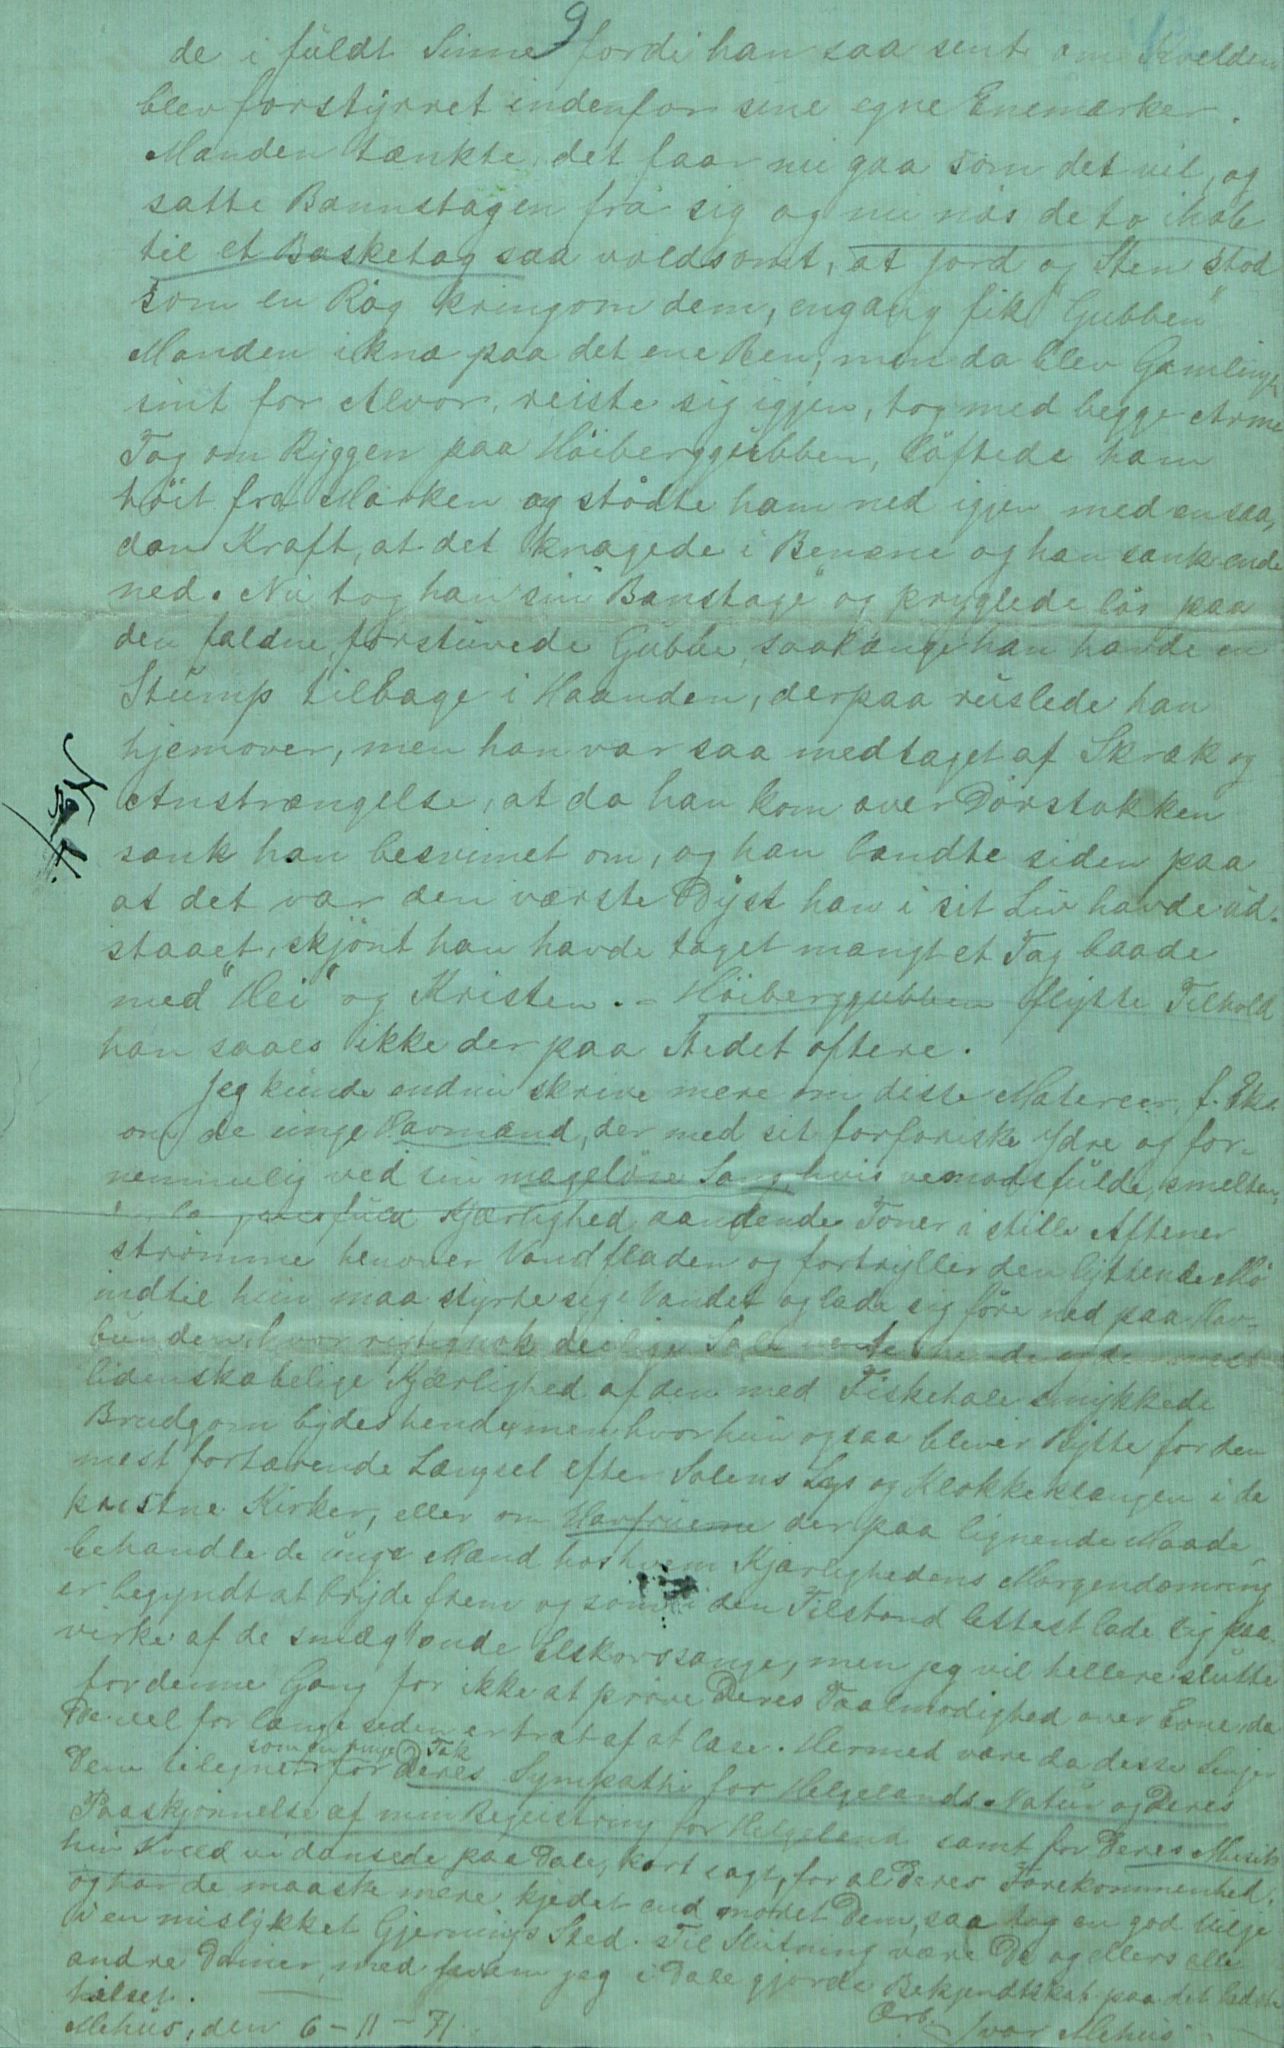 9
de i fuldt Sinne fordi han saa sent om Kvelden
blev forstyrret indenfor sine egne Enemærker.
Manden tænkte, det faar nu gaa som det vil, og
satte Bannstagen fra sig og nu røs de to ihob
til et Basketag saa voldsomt, at Jord og Sten stod
som en Røg kringom dem, engang fik "Gubben"
Manden iknæ paa det ene Ben, men da blev Gamlingen
sint for Alvor, reiste sig igjen, tog med begge Arme
Tag om Ryggen paa Höiberggubben, löftede ham
höit fra Marken og stødte ham ned igjen med en saa,
dan Kraft, at det knagede i Benene og han sank ende
ned. Nu tog han sin "Banstage" og pryglede lös paa
den faldne, forstuvede Gubbe, saalænge han havde en
Stump tilbage i Haanden, derpaa ruslede han
hjemover, men han var saa medtaget af Skræk og
Anstrængelse, at da han kom over Dörstokken
sank han besvimet om, og han bandte siden paa
at det var den værste Dyst han i sit Liv havde ud-
staaet, skjönt han havde taget mangt et Tag baade
med "Hei" og Kristen. - Höiberggubben flytte Tilhold
han saaes ikke der paa Stedet oftere.
Jeg kunde endnu skrive mere om disse Materier, f. Eks.
om de unge Havmænd, der med sit forføriske Ydre og for-
nemmelig ved sin magelöse Sang, hvis vemodsfulde, smelten,
Kjærlighed aandende Toner i stille Aftener
strömme henover Vandfladen og fortryller den lyttende Mö
indtil hun maa styrte sig i Vandet og lade sig före ned paa Hav-
bunden, hvor rigtignok deilige Sale vente hende og de mest
lidenskabelige Kjærlighed af den med Fiskehale smykkede
Brudgom bydes hende, men hvor hun ogsaa bliver Bytte for den
mest fortærende Længsel efter Solens Lys og Klokkeklangen i de
kristne Kirker, eller om Havfruerne der paa lignende Maade
behandle de unge Mænd hos hvem Kjærlighedens Morgendæmring
er begyndt at bryde frem og som i den Tilstand lettest lade sig paa-
virke af de smægtende Elskovssange, men jeg vil hellere slutte
for denne Gang for ikke at prøve Deres Taalmodighed over Evne, da
De vel for længe siden er træt af at læse. Hermed være da disse Linjer
som en ringe Tak
Dem tilegnet for Deres Sympathi for Helgelands Natur og Deres
Paaskjönnelse af min Begeistring for Helgeland samt for Deres Musik
hin Kveld vi dansede paa Dale, kort sagt, for al Deres Forekommenhed,
og har de maaske mere kjedet end moret Dem, saa tag en god Vilge
i en mislykket Gjernings Sted. Til Slutning være De og ellers alle
andre Damer, med hvem jeg i Dale gjorde Bekjendtskab paa det bedste
hilset.
Mehus, den 6-11-71. Ærb. Ivar Mehus